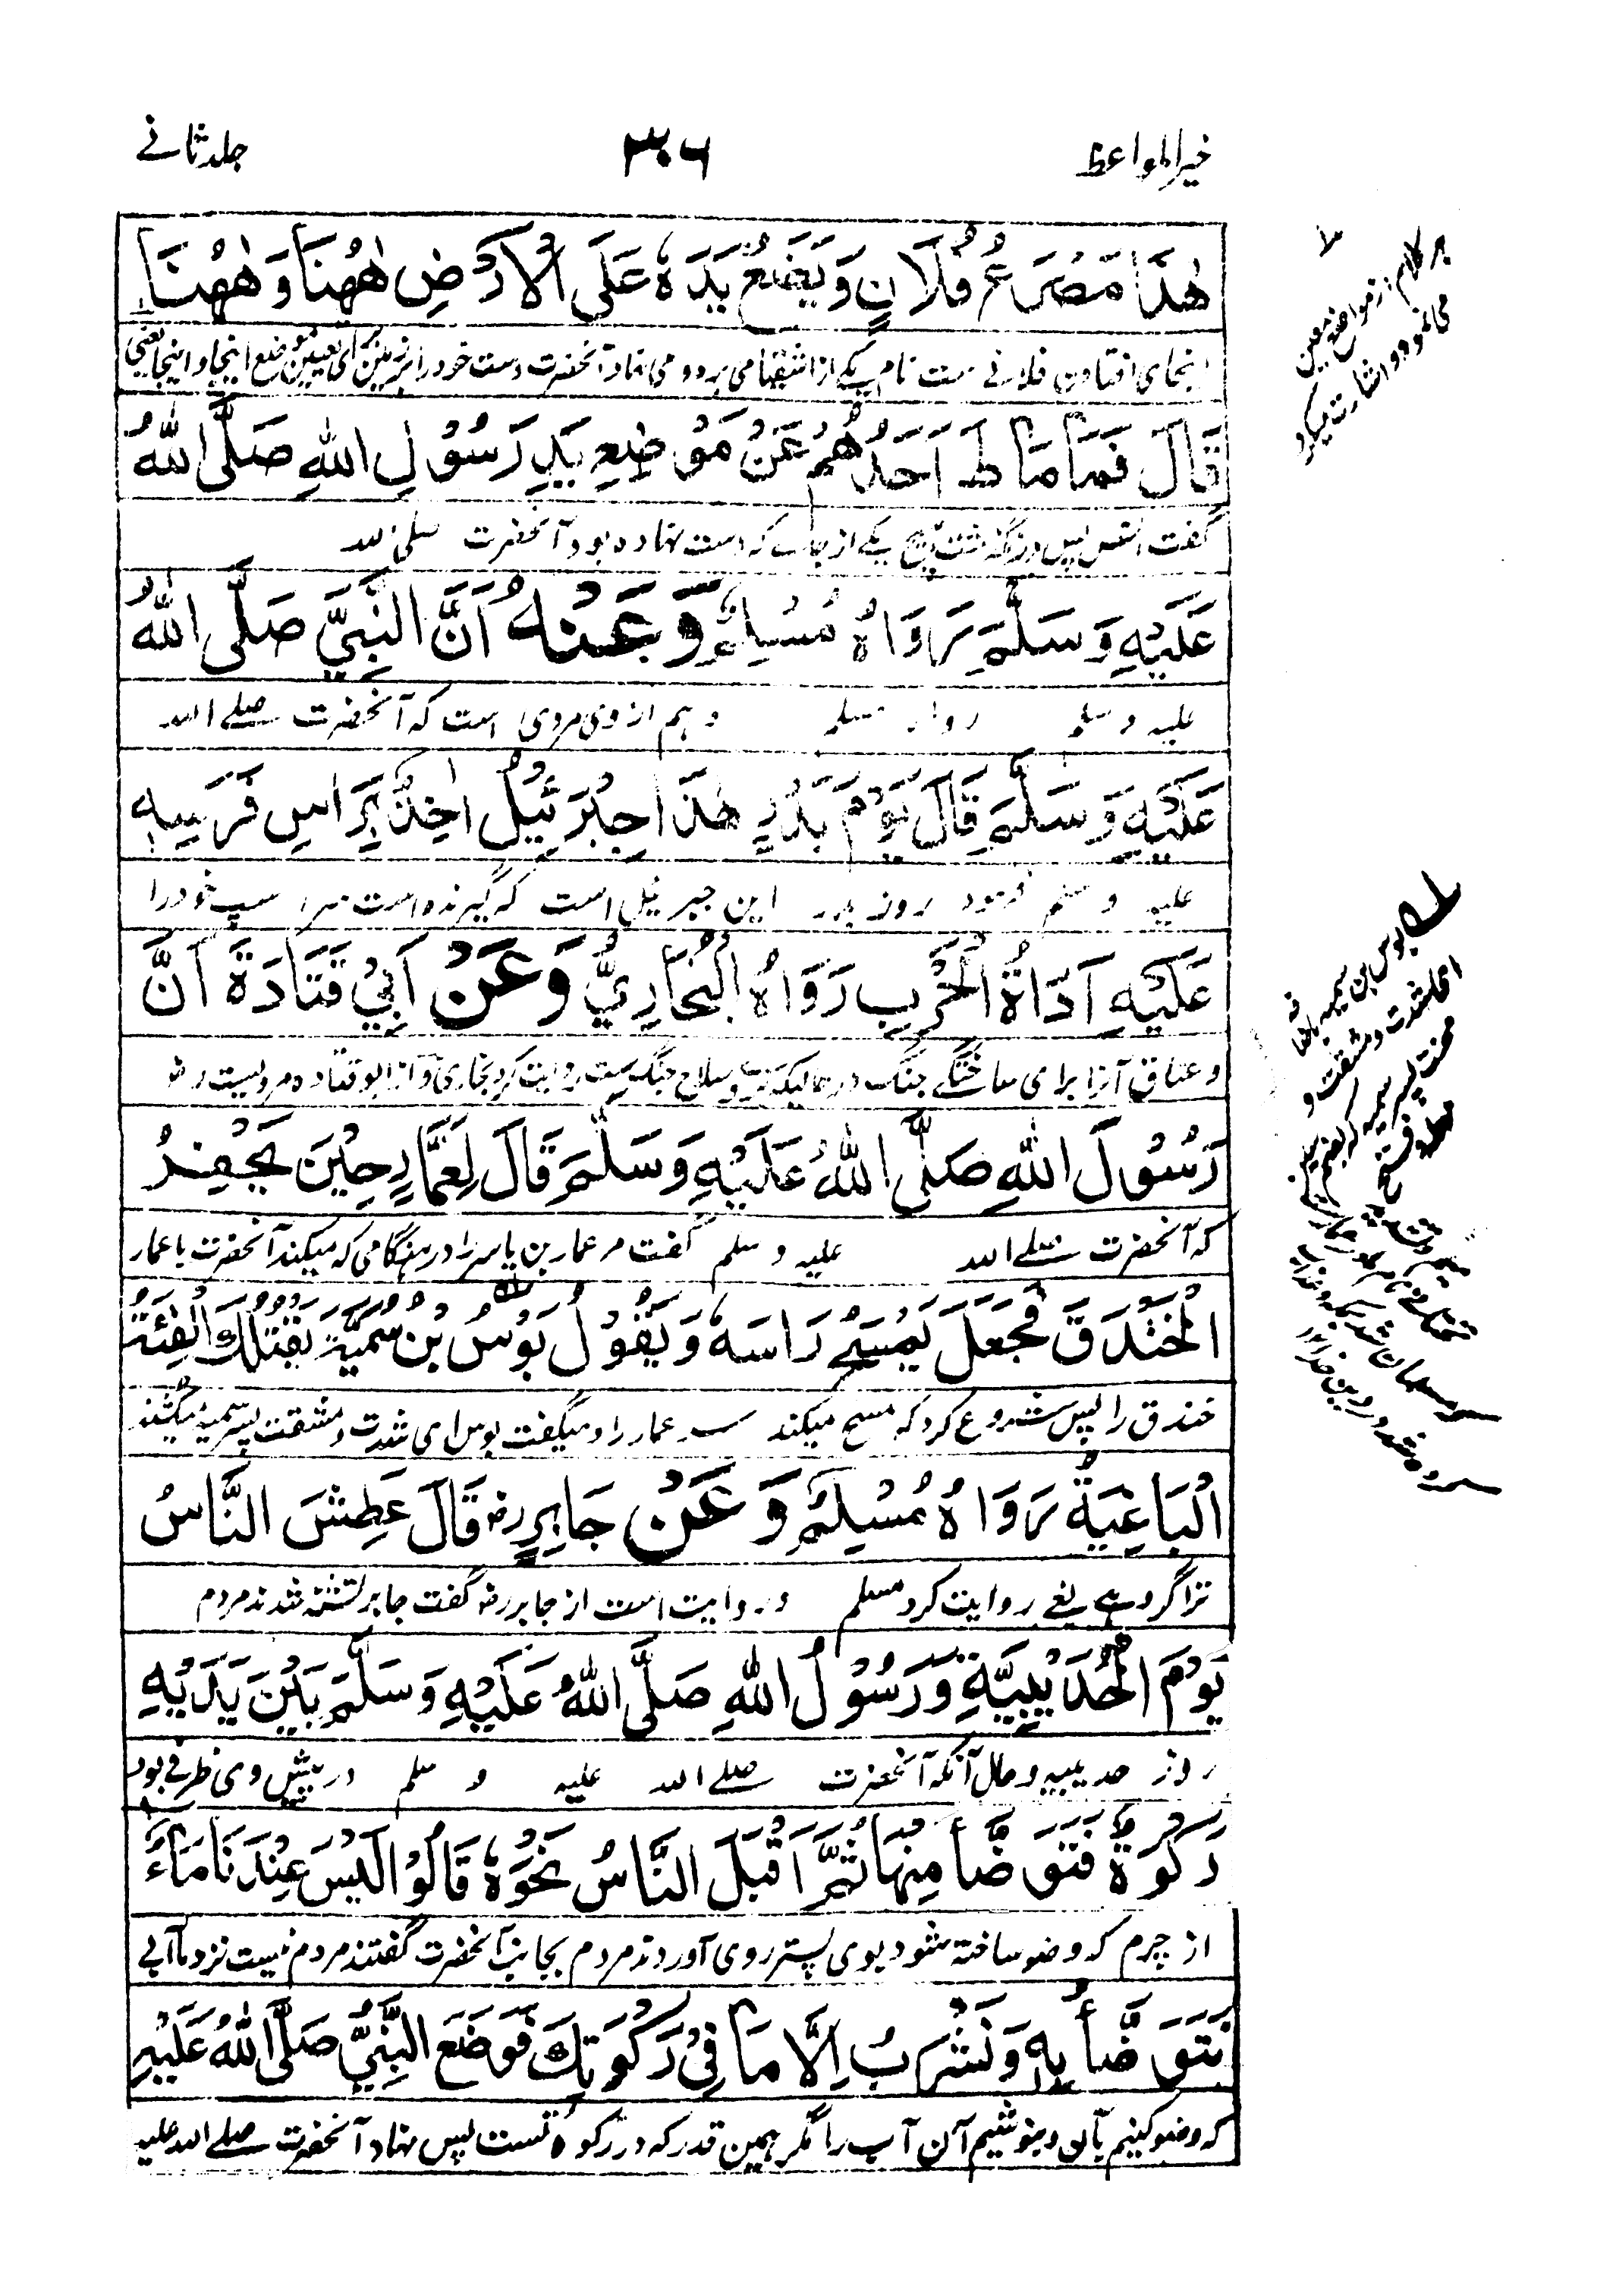 خیرالمواعظ ۳۰۶ جلد ثانے
هٰذَا مَصْرَعُ فُلَانٍ وَيَضَعُ يَدَهٗ عَلَى الْاَرْضِ هٰهُنَا وَهٰهُنَا
اینجای افتادن فلانے ست نام یکے از اشقیا می برد و می نهاد آنحضرت دست خود را بر زمین برای تعیین موضع اینجا و اینجا یعنی
قَالَ فَمَا مَاطَ اَحَدُهُمْ عَنْ مَوْضِعِ يَدِ رَسُوْلِ اللّٰهِ صَلَّى اللّٰهُ
گفت انس پس در نگذشت هیچ یکے از جائے که دست نهاده بود آنحضرت صلی الله
عَلَيْهِ وَسَلَّمَ رَوَاهُ مُسْلِمٌ وَعَنْهُ اَنَّ النَّبِيَّ صَلَّى اللّٰهُ
علیه وسلم رواه مسلم و هم از وی مروی است که آنحضرت صلے الله
عَلَيْهِ وَسَلَّمَ قَالَ يَوْمَ بَدْرٍ هٰذَا جِبْرَئِيْلُ اٰخِذٌ بِرَاسِ فَرَسِهٖ
علیه وسلم فرمود روز بدر این جبرئیل است که گیرنده است سر اسپ خود را
عَلَيْهِ اَدَاةُ الْحَرْبِ رَوَاهُ الْبُخَارِيُّ وَعَنْ اَبِيْ قَتَادَةَ اَنَّ
و عناق آنرا برای ساختگے جنگ در حالیکه بروے سلاح جنگ ست روایت کرد بخاری و از ابو قتاده مرویست رض
رَسُوْلَ اللّٰهِ صَلَّى اللّٰهُ عَلَيْهِ وَسَلَّمَ قَالَ لِعَمَّارٍ حِيْنَ يَحْفِرُ
که آنحضرت صلے الله علیه وسلم گفت مر عمار بن یاسر را در هنگامی که میکند آنحضرت با عمار
الْخَنْدَقَ فَجَعَلَ يَمْسَحُ رَاسَهٗ وَيَقُوْلُ بَوْسُ بْنِ سُمَيَّةَ يَقْتُلُكَ الْفِئَةُ
خندق را پس شروع کرد که مسح میکند سر عمار را و میگفت بوس ای شدت و مشقت پسر سمیه میکشند
الْبَاغِيَةُ رَوَاهُ مُسْلِمٌ وَعَنْ جَابِرٍ رض قَالَ عَطِشَ النَّاسُ
ترا گروهے بغے روایت کرد مسلم و روایت است از جابر رض گفت جابر تشنه شدند مردم
يَوْمَ الْحُدَيْبِيَّةِ وَرَسُوْلُ اللّٰهِ صَلَّى اللّٰهُ عَلَيْهِ وَسَلَّمَ بَيْنَ يَدَيْهِ
روز حدیبیه و حال آنکه آنحضرت صلے الله علیه وسلم در پیش وی ظرفے بود
رَكْوَةٌ فَتَوَضَّأَ مِنْهَا ثُمَّ اَقْبَلَ النَّاسُ نَحْوَهٗ قَالُوْا لَيْسَ عِنْدَنَا مَاءٌ
از چرم که وضو ساخته شود بوی پستر روی آوردند مردم بجانب آنحضرت گفتند مردم نیست نزد ما آبے
نَتَوَضَّأُ بِهٖ وَنَشْرَبُ اِلَّا مَا فِيْ رَكْوَتِكَ فَوَضَعَ النَّبِيُّ صَلَّى اللّٰهُ عَلَيْهِ
که وضو کنیم بآن و بنوشیم آن آب را مگر همین قدر که در رکوه تست پس نهاد آنحضرت صلے الله علیه
هر کدام از مواضع معین
می نمود و اشارت میکرد
بوس بن سمیه
ای شدت و مشقت و
محنت پسر سمیه که بضم سین